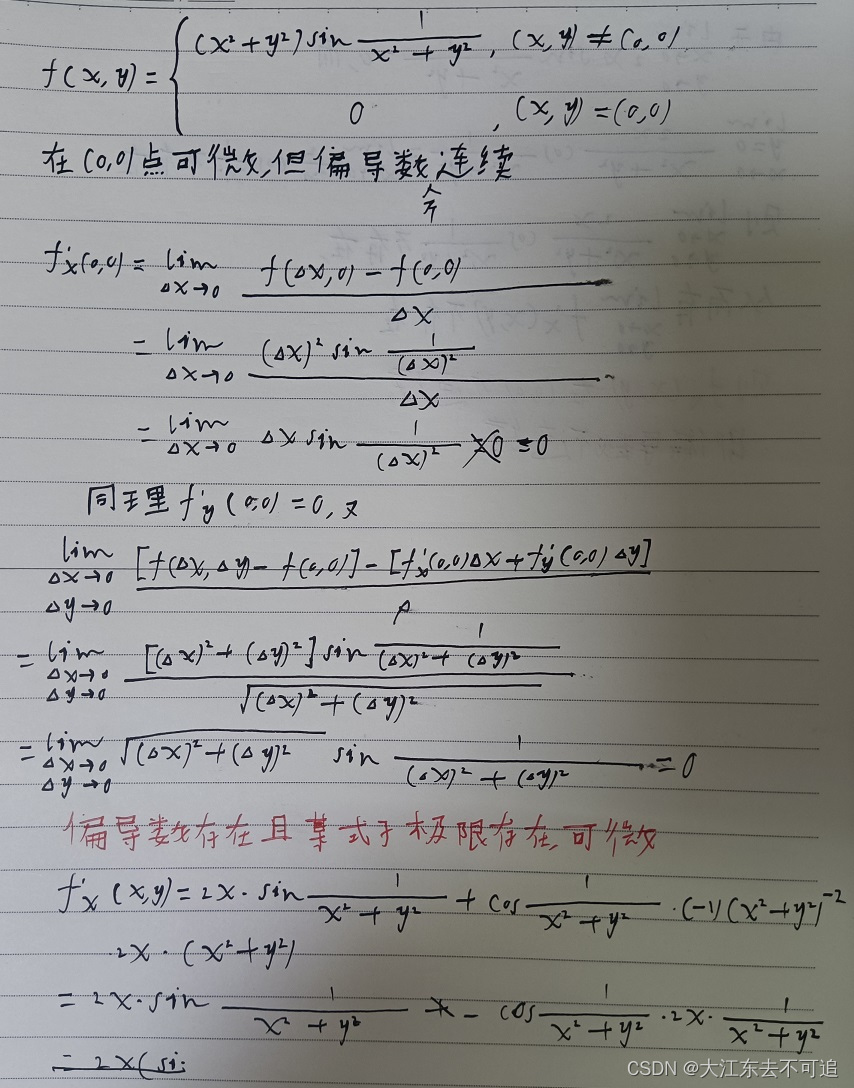 f(x,y) = { (x²+y²) sin 1/(x²+y²), (x,y) ≠ (0,0)
0, (x,y) = (0,0)
在(0,0)点可微,但偏导数连续
不
f'x(0,0) = lim Δx→0 [f(Δx,0) - f(0,0)] / Δx
= lim Δx→0 [(Δx)² sin 1/(Δx)²] / Δx
= lim Δx→0 Δx sin 1/(Δx)² = 0
同理 f'y(0,0) = 0, 又
lim Δx→0 Δy→0 {[f(Δx,Δy) - f(0,0)] - [f'x(0,0)Δx + f'y(0,0)Δy]} / ρ
= lim Δx→0 Δy→0 {[(Δx)² + (Δy)²] sin 1/((Δx)² + (Δy)²)} / √((Δx)² + (Δy)²)
= lim Δx→0 Δy→0 √((Δx)² + (Δy)²) sin 1/((Δx)² + (Δy)²) = 0
偏导数存在且某式子极限存在,可微
f'x(x,y) = 2x · sin 1/(x²+y²) + cos 1/(x²+y²) · (-1)(x²+y²)⁻²
· 2x · (x²+y²)
= 2x · sin 1/(x²+y²) - cos 1/(x²+y²) · 2x · 1/(x²+y²)
= 2x(si
CSDN @大江东去不可追